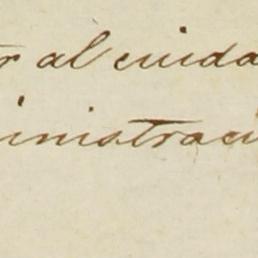 r al cuida
inistraci